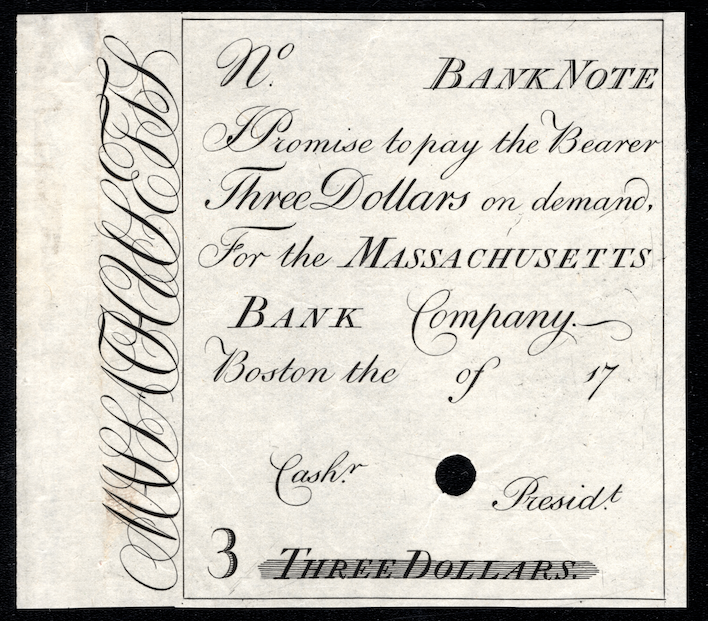 MASSACHUSETTS
No. BANK NOTE
I Promise to pay the Bearer
Three Dollars on demand,
For the MASSACHUSETTS
BANK Company.
Boston the of 17
Cashr. Presidt.
3 THREE DOLLARS.